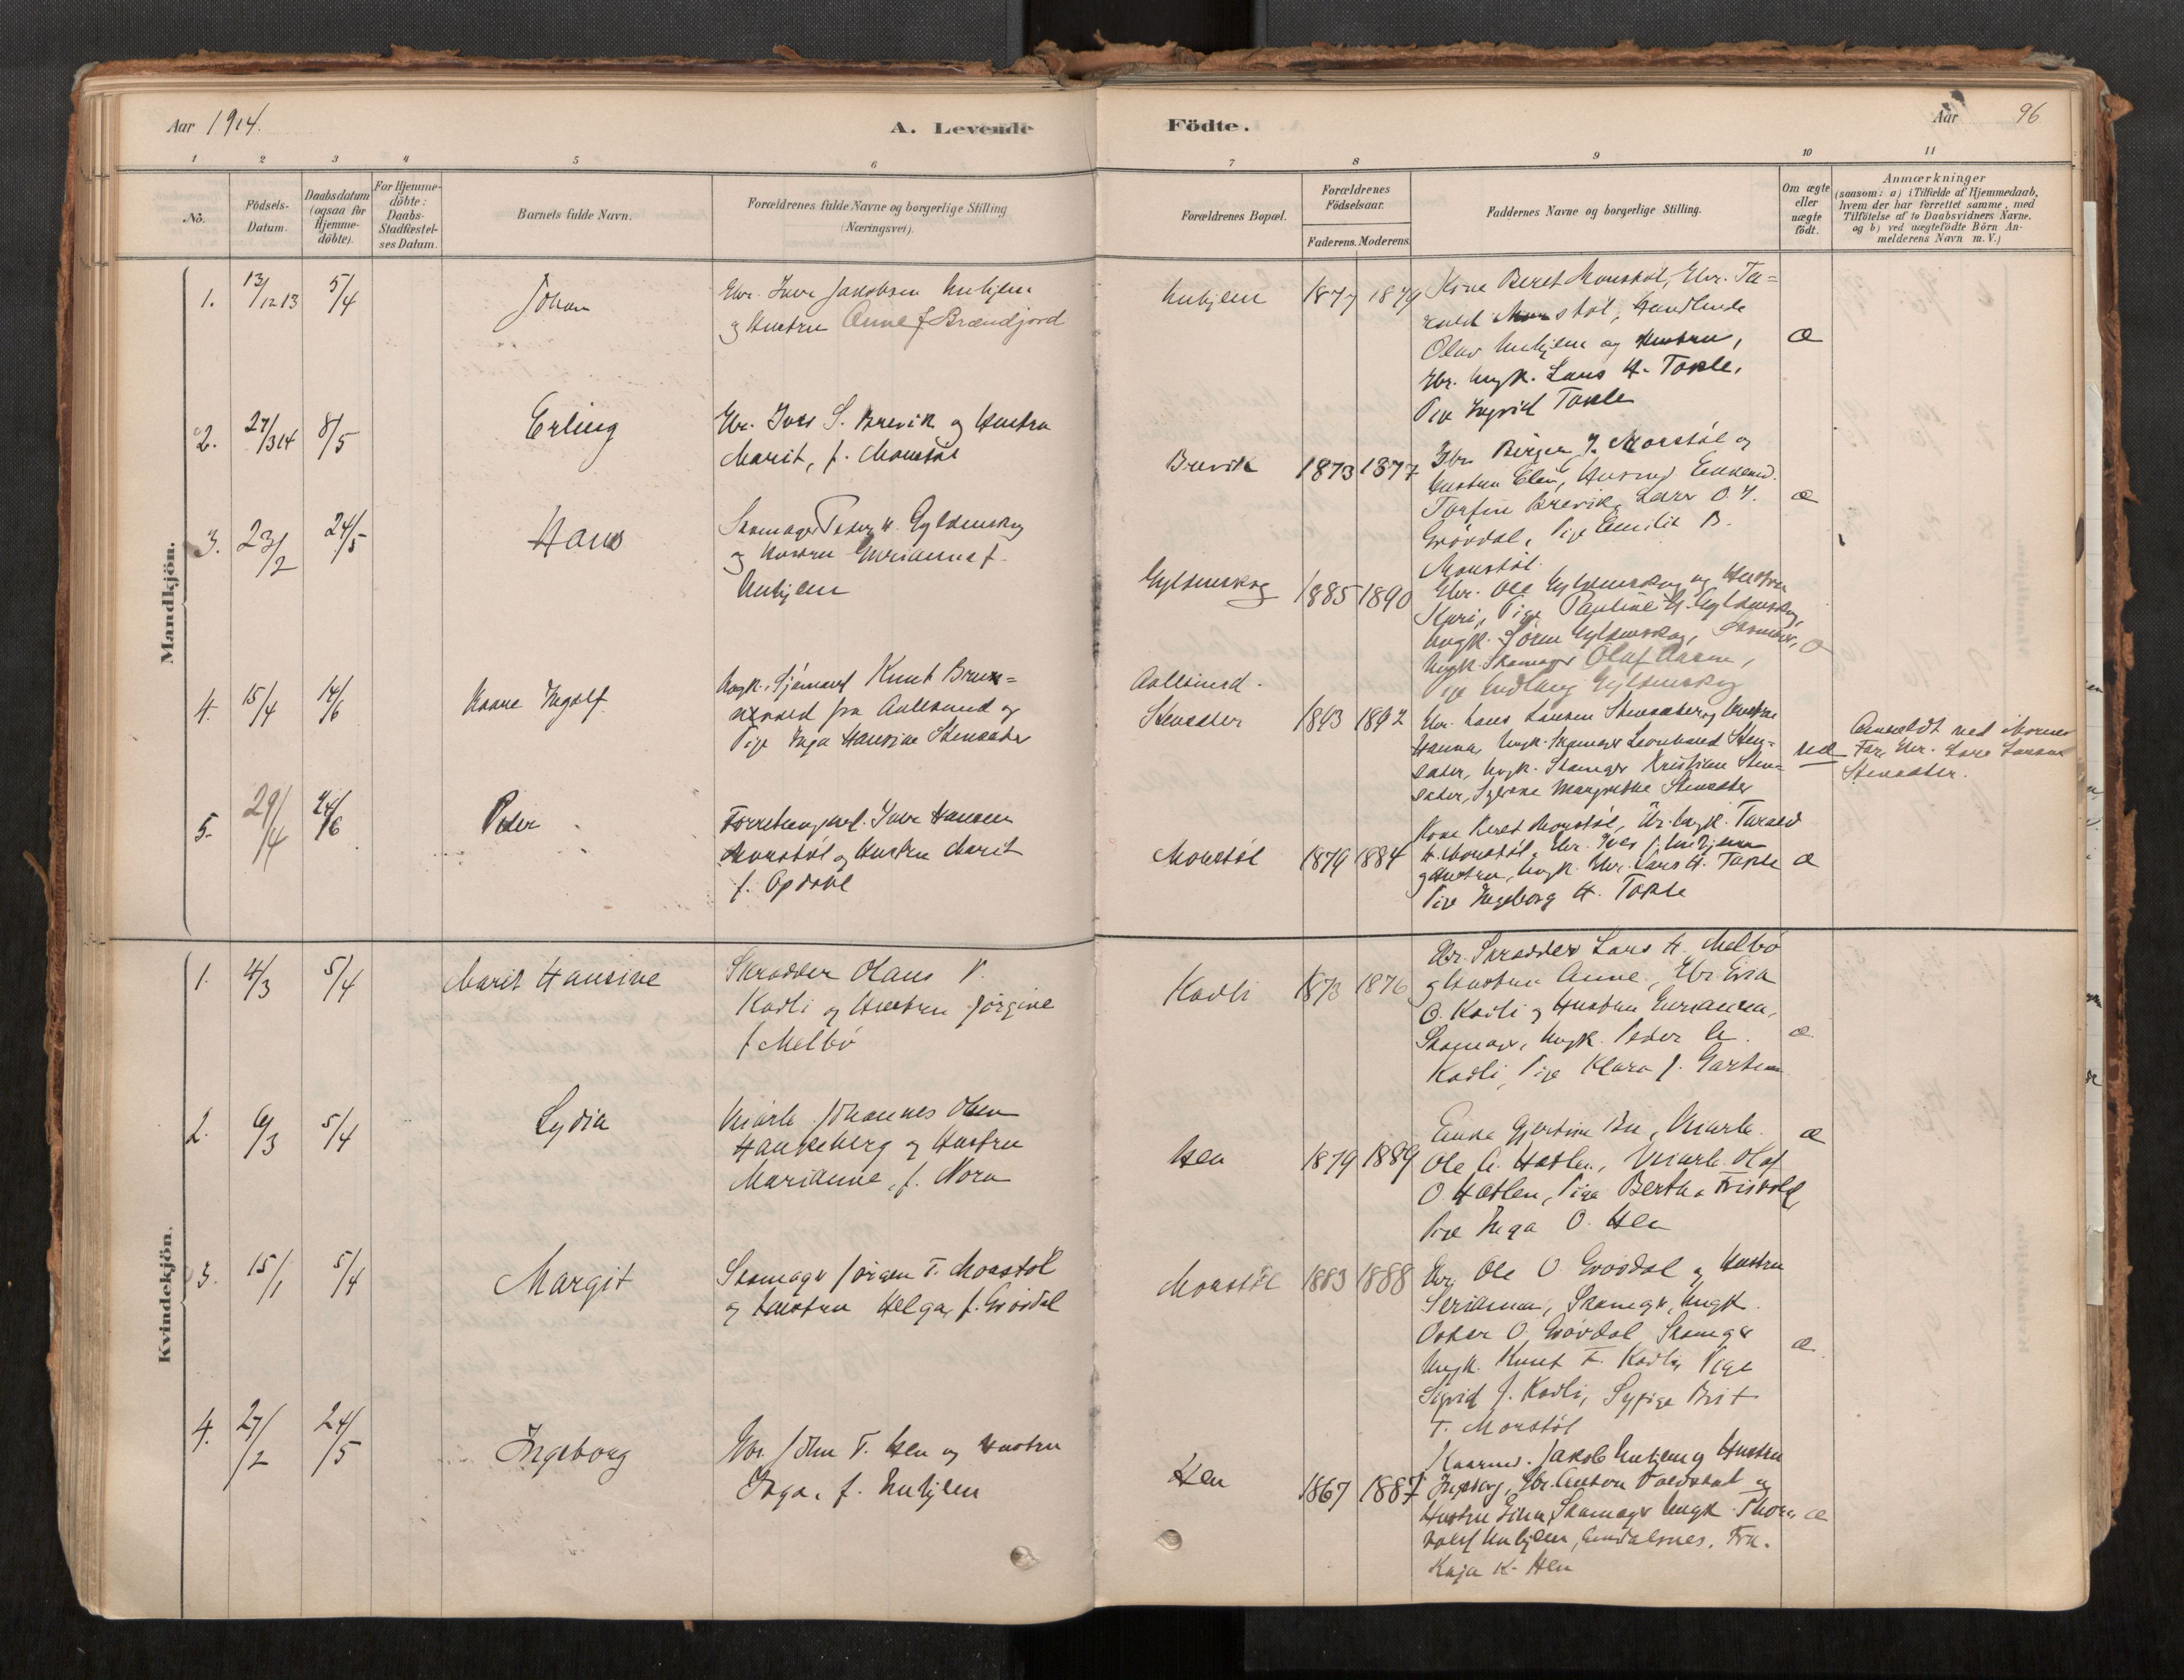 Aar 1914.
A. Levende Födte.
Aar 96
1 2 3 4 5 6 7 8 9 10 11
No.
Födsels-Datum.
Daabsdatum (ogsaa for Hjemmedöbte).
For Hjemmedöbte: Daabs-Stadfæstelses Datum.
Barnets fulde Navn.
Forældrenes fulde Navne og borgerlige Stilling (Næringsvei).
Forældrenes Bopæl.
Forældrenes Födselsaar.
Faderens. Moderens.
Faddernes Navne og borgerlige Stilling.
Om ægte eller uægte födt.
Anmærkninger
(saasom: a) i Tilfælde af Hjemmedaab, hvem der har forrettet samme, med Tilföielse af to Daabsvidners Navne. og b) ved uægtefödte Börn Anmelderens Navn m. V.)
Mandkjön.
1. 13/12 13 5/4 Johan
Gbr. Iver Jakobsen Unhjem
og Hustru Anne f. Brændjord
Unhjem 1877 1879
Kone Beret Monstöl, Gbr. Ta=
rald Monstöl, Handlende
Olav Unhjem og Hustru,
Gbr. Ungk. Lars H. Tokle,
Pige Ingrid Tokle
æ
2. 27/3 14 8/5 Erling
Gbr. Iver S. Brevik og Hustru
Marit, f. Monstöl
Brevik 1873 1877
Gbr. Birger J. Monstöl og
Hustru Elen, Husmd. Enkemd.
Torfin Brevik, Lars O. J.
Grövdal, Pige Emilie B.
Monstöl.
æ
3. 23/2 24/5 Hans
Skomager Peder H. Gyldenskog
og Hustru Gurianna f.
Unhjem
Gyldenskog 1885 1890
Gbr. Ole Gyldenskog og Hustru
Kari, Pige Pauline H. Gyldenskog,
Ungk. Sören Gyldenskog,
Ungk. Skomager Olaf Aasen,
Pige Gyldenskog
4. 15/4 14/6 Kaare Ingolf
Ungk. Sjömand Knut Brun=
fra Aalesund og
Pige Inga Hansine Stensæter
Aalesund.
Stensæter 1893 1892
Gbr. Lars Larsen Stensæter og Hustru
Hanna, Ungk. Skomager Leonhard Sten=
sæter, Ungk. Skomager Kristian Sten=
sæter, Syerske Margrethe Stensæter
uæ
Anmeldt ved Mornes
Far, Gbr. Lars Larsen
Stensæter.
5. 29/4 24/6 Peder
Forretningsmd. Iver Hansen
Monstöl og Hustru Marit
f. Opdöl
Monstöl 1879 1884
Kone Beret Monstöl, Gbr. Ungk. Tarald
H. Monstöl, Gbr. Iver J. Unhjem
og Hustru, Ungk. Gbr. Lars H. Tokle
Pige Ingeborg H. Tokle
æ
Kvindekjön.
1. 4/3 5/4 Marit Hansine
Skrædder Olaus P.
Kadli og Hustru Jörgine
f. Melbö
Kadli 1873 1876
Gbr. Skrædder Lars H. Melbö
og Hustru Anne, Gbr. Erik
O. Kadli og Hustru Gurianna,
Skomager, Ungk. Peder A.
Kadli, Pige Klara J. Garten
æ
2. 6/3 5/4 Lydia
Veiarb. Johannes Olsen
Haukeberg og Hustru
Marianne, f. Nora
Hen 1879 1889
Enke Gjertine Bu, Veiarb.
Ole A. Hatlen, Veiarb. Olaf
O. Hatlen, Pige Bertha Frisvold
Pige Inga O. Hen
æ
3. 15/1 5/4 Margit
Skomager Jörgen T. Monstöl
og Hustru Helga, f. Grövdal
Monstöl 1883 1888
Gbr. Ole O. Grövdal og Hustru
Serianna, Skomager, Ungk.
Oskar O. Grövdal, Skomager
Ungk. Knut T. Kadli, Pige
Sigrid J. Kadli, Sypige Brit
T. Monstöl
æ
4. 27/2 24/5 Ingeborg
Gbr. John T. Hen og Hustru
Inga, f. Unhjem
Hen 1867 1887
Kaarmd. Jakob Unhjem og Hustru
Ingeborg, Gbr. Anton Voldstad og
Hustru Gina, Skomager Ungk. Thor
Unhjem, Aandalsnes, Frk.
Kaja K. Hen
æ